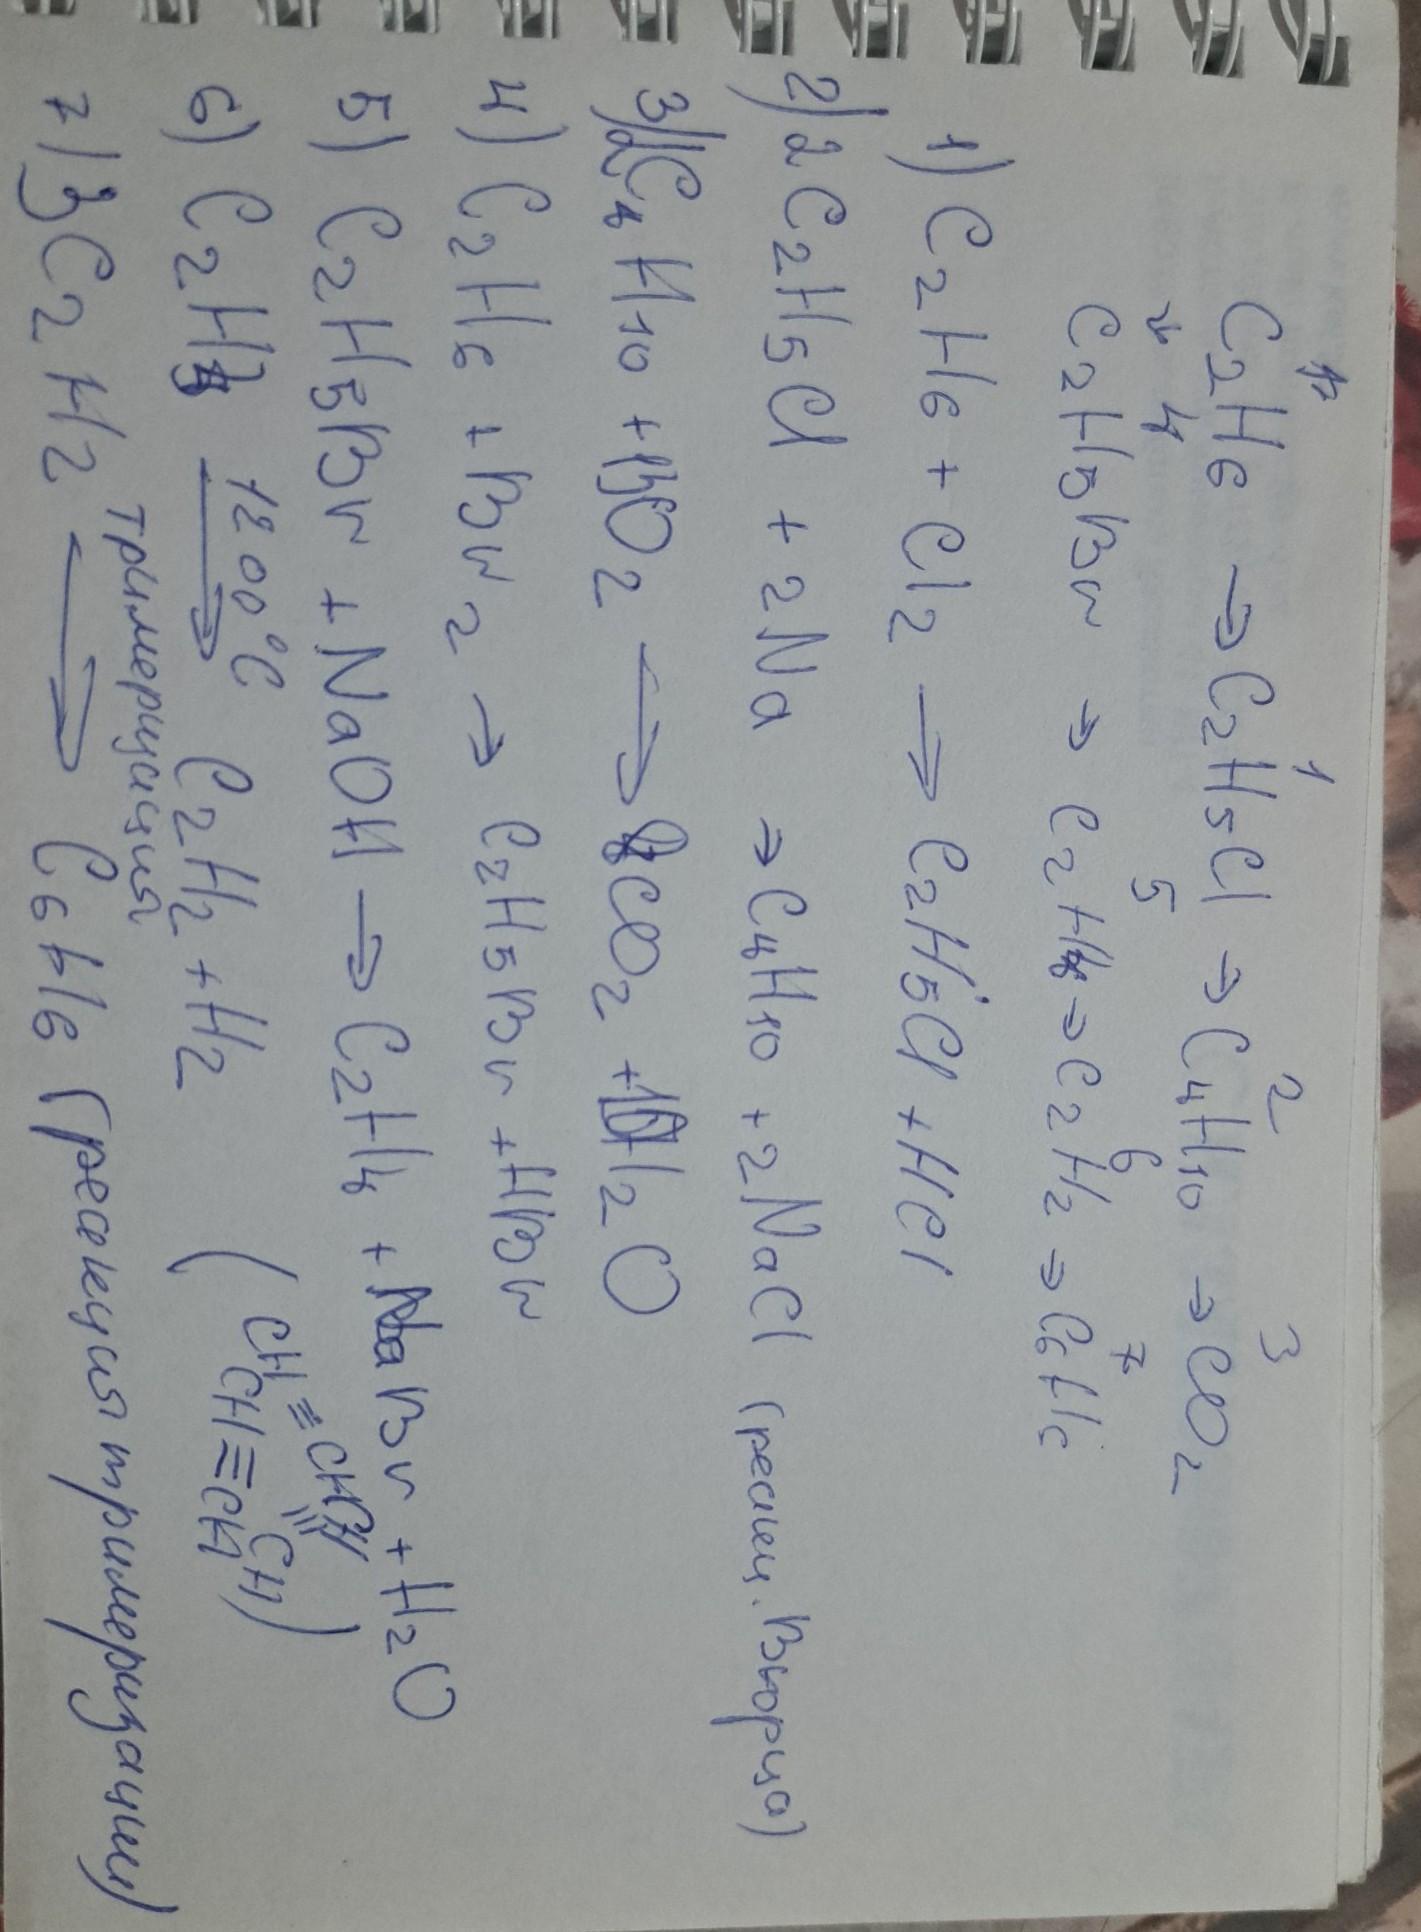 C2H6 → C2H5Cl → C4H10 → CO2
1 2 3
↓ 4 5 6 7
C2H5Br → C2H4 → C2H2 → C6H6
1) C2H6 + Cl2 → C2H5Cl + HCl
2) 2C2H5Cl + 2Na → C4H10 + 2NaCl (реакц. Вюрца)
3) 2C4H10 + 13O2 → 8CO2 + 10H2O
4) C2H6 + Br2 → C2H5Br + HBr
5) C2H5Br + NaOH → C2H4 + NaBr + H2O
6) C2H4 1200°C → C2H2 + H2
(CH≡CH
CH≡CH
CH≡CH)
тримеризация
7) 3C2H2 → C6H6 (реакция тримеризации)